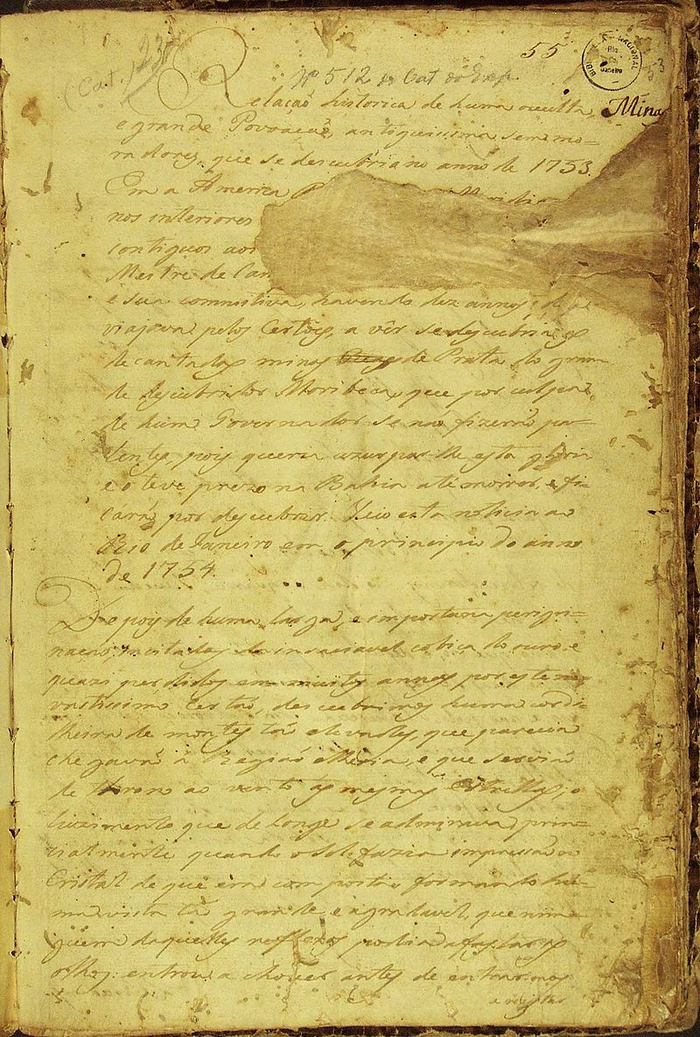 (Cat.) 23
55
BIBLIOTHECA NACIONAL RIO DE JANEIRO
Nº 512 do Cat. do Exp.
Relação historica de huma occulta,
Minas
e grande Povoação, antiquissima sem mo-
radores, que se descubriu no anno de 1753.
Em a America
nos interiores
contiguos aos
Mestre de Can
e sua commitiva, havendo dez annos, que
viajava pelos Certoẽs, a vêr se descubria as
decantadas minas de Prata do gran-
de descubridor Moribeca, que por culpa
de hum Governador se naõ fizeraõ pa-
tentes, pois queria uzurparlhe esta gloria
e o teve prezo na Bahia até morrer, e fi-
caraõ por descubrir. Veio esta noticia ao
Rio de Janeiro em o principio do anno
de 1754.
Depois de huma larga, e importuna perigri-
naçaõ, incitados da insaciavel cobiça do ouro, e
quazi perdidos em muitos annos por este
vastissimo Certaõ, descubrimos huma cordi-
lheira de montes taõ elevados, que parecia
chegavaõ á Regiaõ etherea, e que serviaõ
de throno ao vento, ás mesmas Estrellas; o
luzimento que de longe se admirava, prin-
cipalmente quando o Sol fazia impressaõ ao
Cristal de que era composta, formando hu-
ma vista taõ grande e agradavel, que nin-
guem daquelles reflexos podia afastar os
olhos: entrou a chover antes de entrarmos
a registar